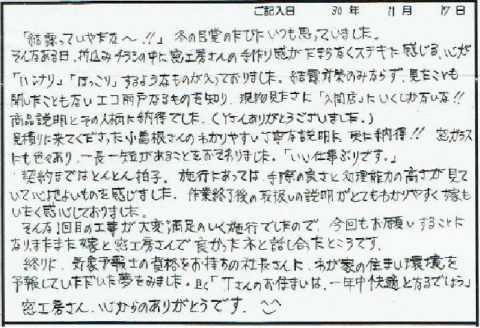 ご記入日 30年 11月 17日
「結露っていやだな〜!!」冬の目覚のたびにいつも思っていました。
そんなある日、折込みチラシの中に窓工房さんの手作り感がたまらなくステキに感じる、心が
「ハンナリ」「ほっこり」するようなものが入っておりました。結露対策のみならず、見たことも
聞いたこともないエコ雨戸なるものを知り、現物見たさに「入間店」にいくしかないな!!
商品説明とその人柄に納得でした。(、さんありがとうございました。)
見積りに来てくださった小島根さんのわかりやすい丁寧な説明に、更に納得!! 窓ガラス
にも色々あり、一長一短があることをおそわりました。「いい仕事ぶりです。」
契約まではとんとん拍子。施行にあっては、手際の良さと処理能力の高さが見て
いて心地よいものを感じました。作業終了後の取扱いの説明がとてもわかりやすく嫁も
いたく感心しておりました。
そんな1回目の工事が大変満足のいく施行でしたので、今回もお願いすることに
なりましたまた嫁と窓工房さんで良かったネと話し合ったところです。
終りに、気象予報士の資格をお持ちの社長さんに、わが家の住まい環境を
予報していただいた夢をみました。「Tさんのお住まいは、一年中快適となるでしょう」
窓工房さん、心からのありがとうです。